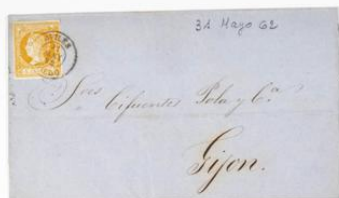 31 Mayo 62
Sres
Cifuentes Pola y Cª
Gijon.